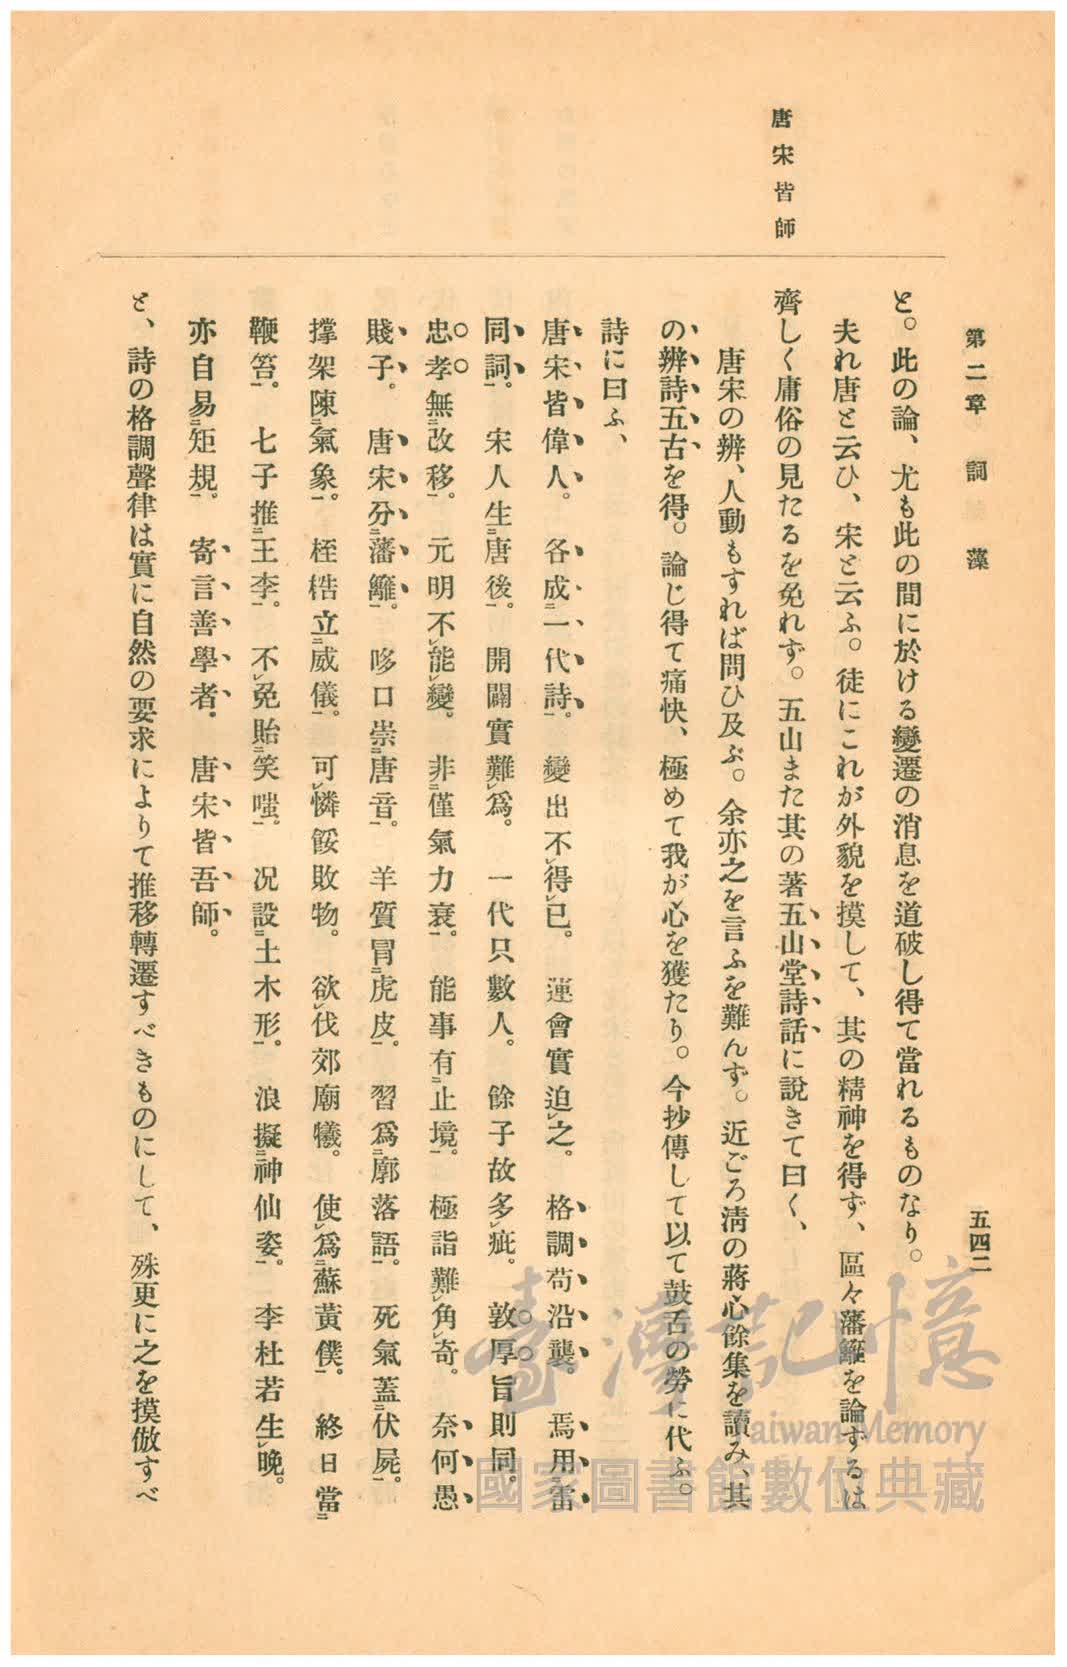 第二章　詞　藻
五四二
唐宋皆師
と。此の論、尤も此の間に於ける變遷の消息を道破し得て當れるものなり。
夫れ唐と云ひ、宋と云ふ。徒にこれが外貌を摸して、其の精神を得ず、區々藩籬を論ずるは
齊しく庸俗の見たるを免れず。五山また其の著五山堂詩話に說きて曰く、
唐宋の辨、人動もすれば問ひ及ぶ。余亦之を言ふを難んず。近ごろ淸の蔣心餘集を讀み、其
の辨詩五古を得。論じ得て痛快、極めて我が心を獲たり。今抄傳して以て鼓舌の勞に代ふ。
詩に曰ふ、
唐宋皆偉人。各成二一代詩一。變出不レ得レ已。運會實迫レ之。格調苟沿襲。焉用二雷
同詞一。宋人生二唐後一。開闢實難レ爲。一代只數人。餘子故多レ疵。敦厚旨則同。
忠孝無二改移一。元明不レ能レ變。非二僅氣力衰一。能事有二止境一。極詣難レ角レ奇。奈何愚
賤子。唐宋分二藩籬一。哆口崇二唐音一。羊質冒二虎皮一。習爲二廓落語一。死氣蓋二伏屍一。
撐架陳二氣象一。桎梏立二威儀一。可レ憐餒敗物。欲レ伐郊廟犧。使レ爲二蘇黃僕一。終日當二
鞭笞一。七子推二王李一。不レ免貽二笑嗤一。况設二土木形一。浪擬二神仙姿一。李杜若生レ晚。
亦自易二矩規一。寄言善學者。唐宋皆吾師。
と、詩の格調聲律は實に自然の要求によりて推移轉遷すべきものにして、殊更に之を摸倣すべ
臺灣記憶
Taiwan Memory
國家圖書館數位典藏